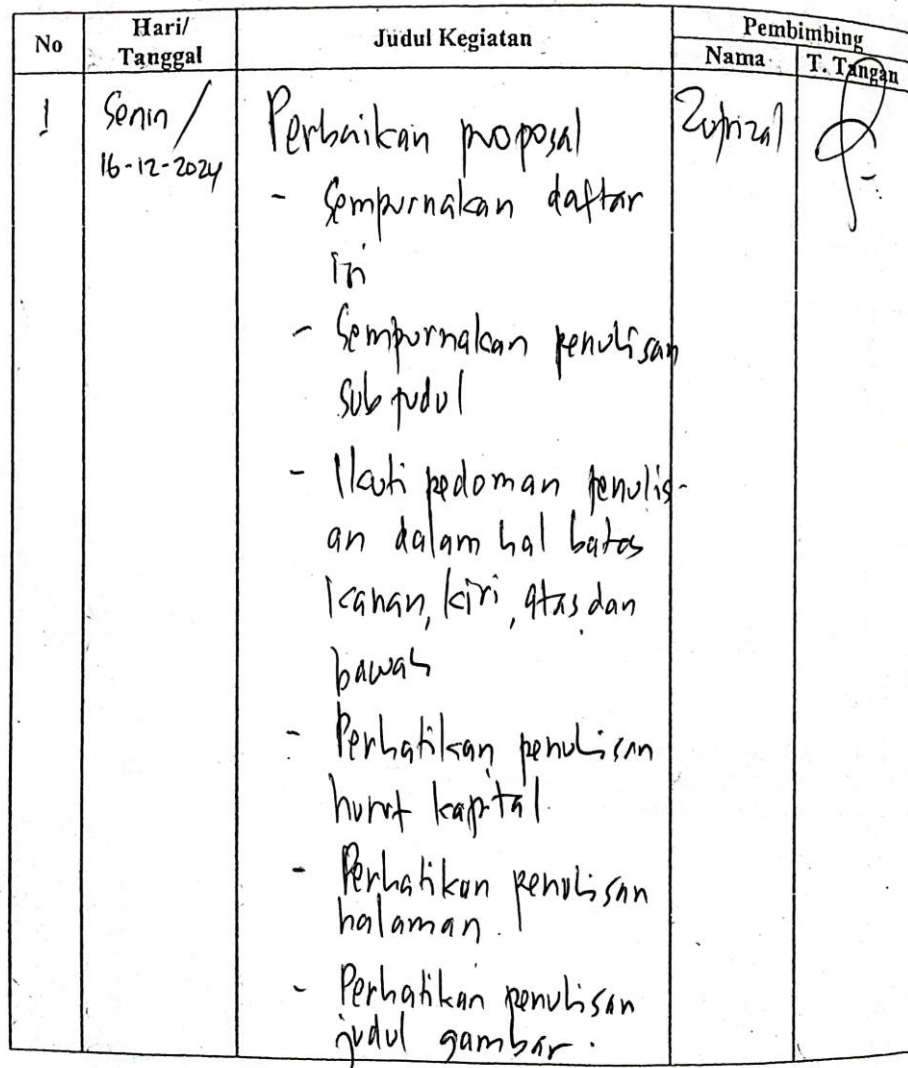 No
Hari/
Tanggal
Judul Kegiatan
Pembimbing
Nama
T. Tangan
1
Senin /
16-12-2024
Perbaikan proposal
- Sempurnakan daftar
isi
- Sempurnakan penulisan
sub judul
- Ikuti pedoman penulis-
an dalam hal batas
kanan, kiri, atas dan
bawah
- Perhatikan penulisan
huruf kapital.
- Perhatikan penulisan
halaman.
- Perhatikan penulisan
judul gambar.